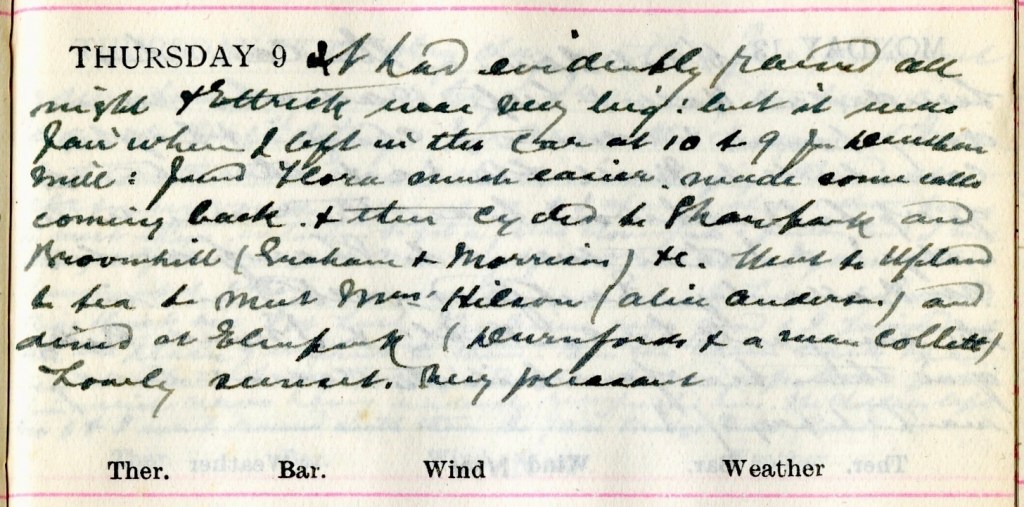 THURSDAY 9 It had evidently rained all
night & Ettrick was very big: but it was
fair when I left in the car at 10 to 9 for
Mill: found Flora much easier. made some calls
coming back. & then cycled to Shawpark and
Broomhill (Graham & Morrison) &c. Went to Upland
to tea to meet Mrs Hilson (Alice Anderson) and
dined at Elmpark (Durnfords & a man Collett)
Lovely sunset. Very pleasant
Ther. Bar. Wind Weather